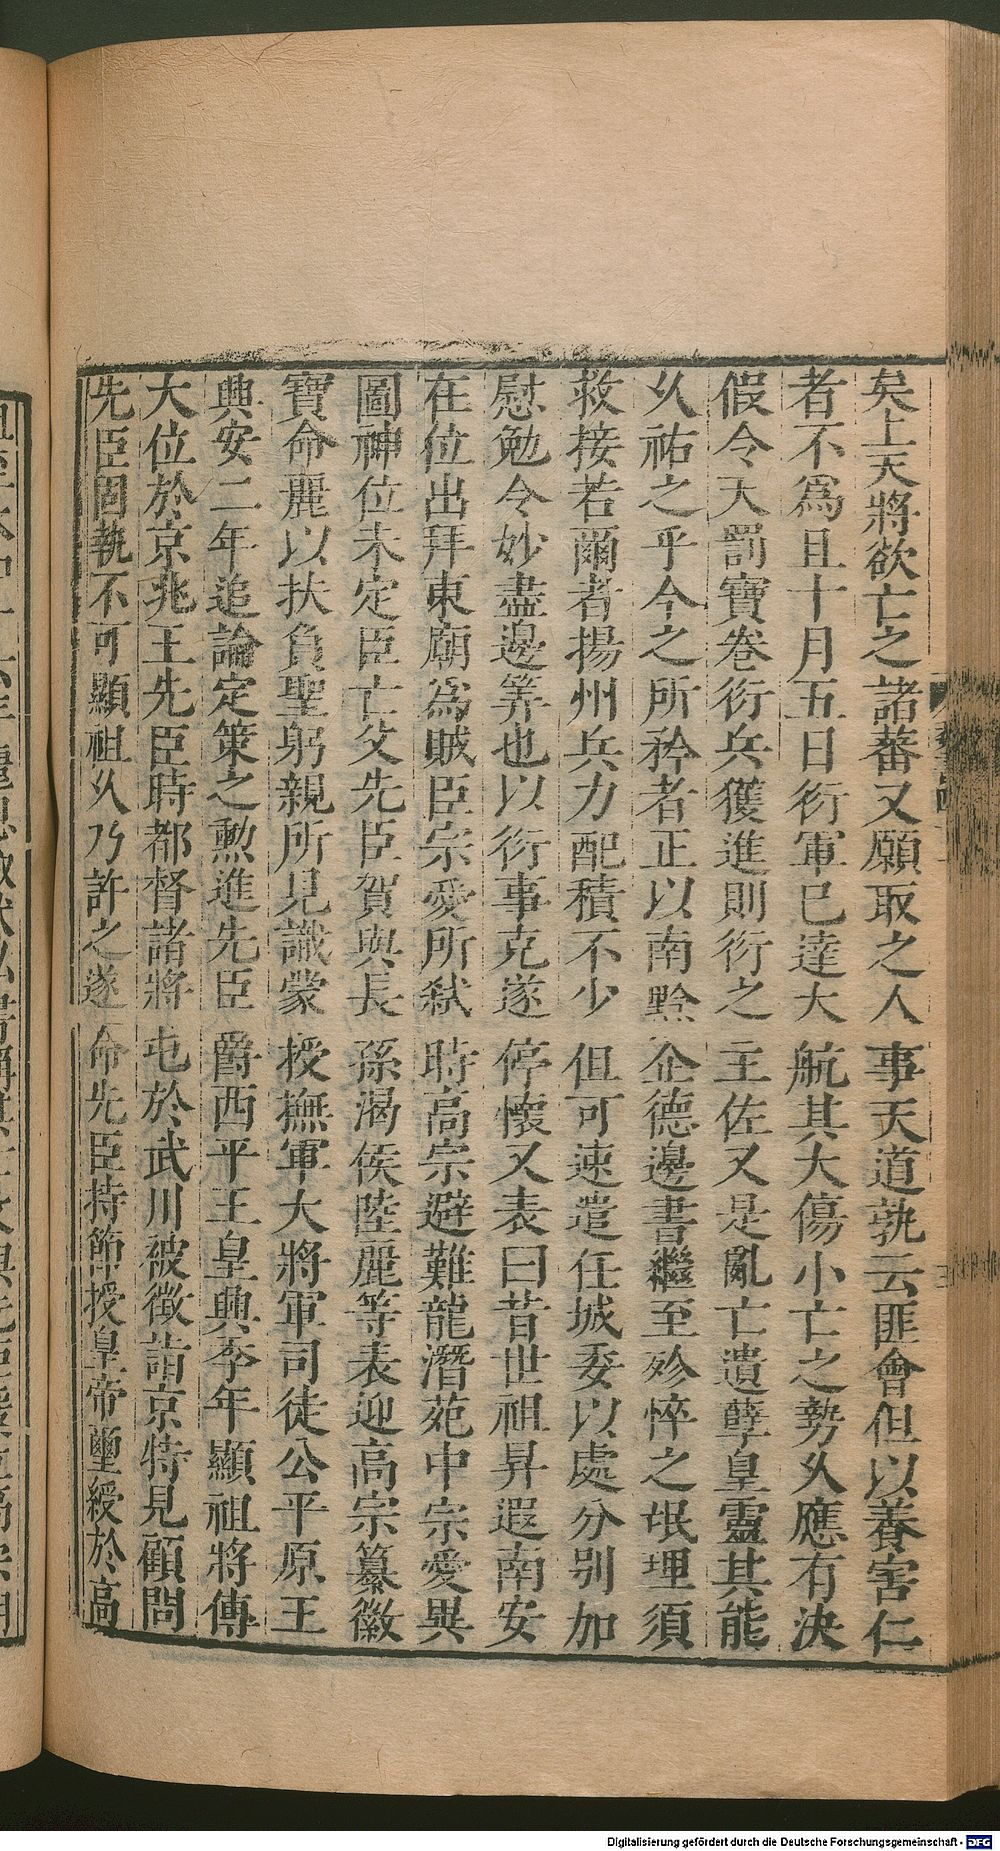 矣上天將欲亡之諸蕃又願取之人事天道孰云匪會但以養害仁
者不爲且十月五日衍軍已達大航其大傷小亡之勢久應有決
假令天罰寶卷衍兵獲進則衍之主佐又是亂亡遺孽皇靈其能
久祐之乎今之所矜者正以南黔企德邊書繼至殄悴之氓理須
救接若爾者揚州兵力配積不少但可速遣任城委以處分别加
慰勉令妙盡邊筭也以衍事克遂停懷又表曰昔世祖昇遐南安
在位出拜東廟爲賊臣宗愛所弑時高宗避難龍潛苑中宗愛異
圖神位未定臣亡父先臣賀與長孫渴侯陸麗等表迎高宗纂徽
寶命麗以扶負聖躬親所見識蒙授撫軍大將軍司徒公平原王
興安二年追論定策之勲進先臣爵西平王皇興季年顯祖將傳
大位於京兆王先臣時都督諸將屯於武川被徵詣京特見顧問
先臣固執不可顯祖久乃許之遂命先臣持節授皇帝璽綬於高
Digitalisierung gefördert durch die Deutsche Forschungsgemeinschaft - DFG